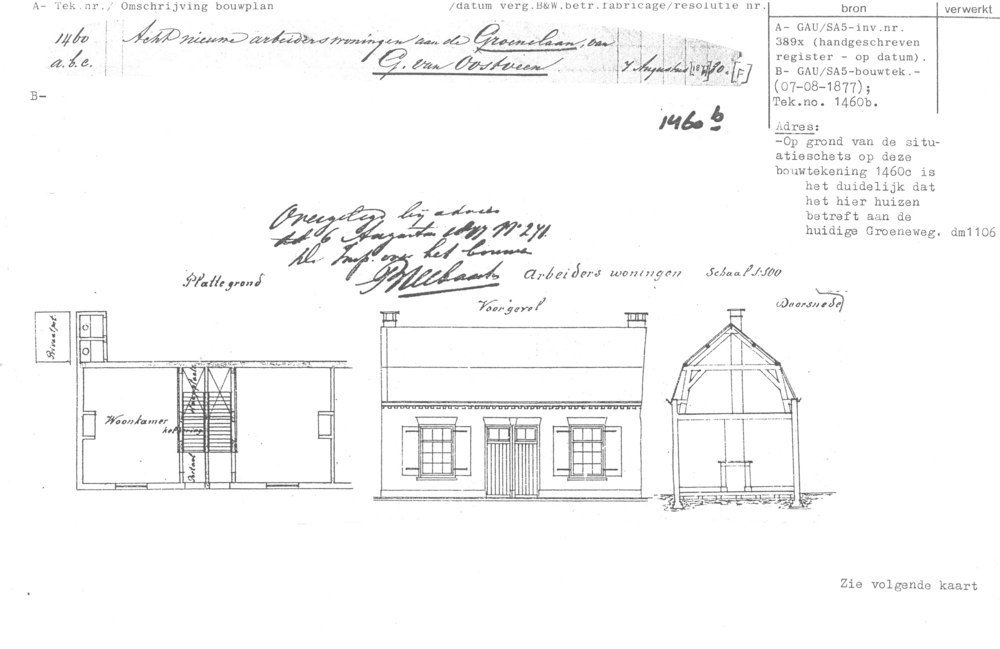 A- Tek.nr./ Omschrijving bouwplan /datum verg.B&W.betr.fabricage/resolutie nr.
bron
verwerkt
1460
a.b.c.
Acht nieuwe arbeiderswoningen aan de Groenelaan, van
G. van Oostveen
7 Augustus
A- GAU/SA5-inv.nr.
389x (handgeschreven
register - op datum).
B- GAU/SA5-bouwtek.-
(07-08-1877);
Tek.no. 1460b.
B-
1460 b
Adres:
-Op grond van de situ-
atieschets op deze
bouwtekening 1460c is
het duidelijk dat
het hier huizen
betreft aan de
huidige Groeneweg. dm1106
Overgelegd bij advies
6 Augustus 1877 No 271.
De Insp. over het bouwen
Arbeiders woningen
Schaal 1:100
Platte grond
Voorgevel
Doorsnede
Privaatput
Woonkamer
Portaal
Zie volgende kaart